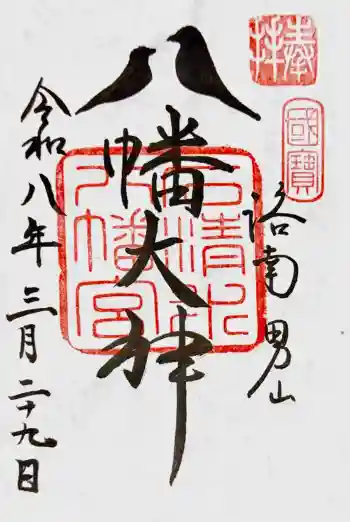 奉拝
國寶
洛南 男山
八幡大神
石清水八幡宮
令和八年 三月二十九日